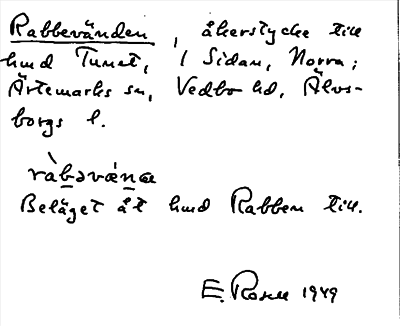 Rabbevänden, åkerstycke till
hmd Tunet, i Sidan, Norra;
Ärtemarks sn, Vedbo hd, Älvs-
borgs l.
ràbəvén
Beläget åt hmd Rabben till.
E. Rosell 1949